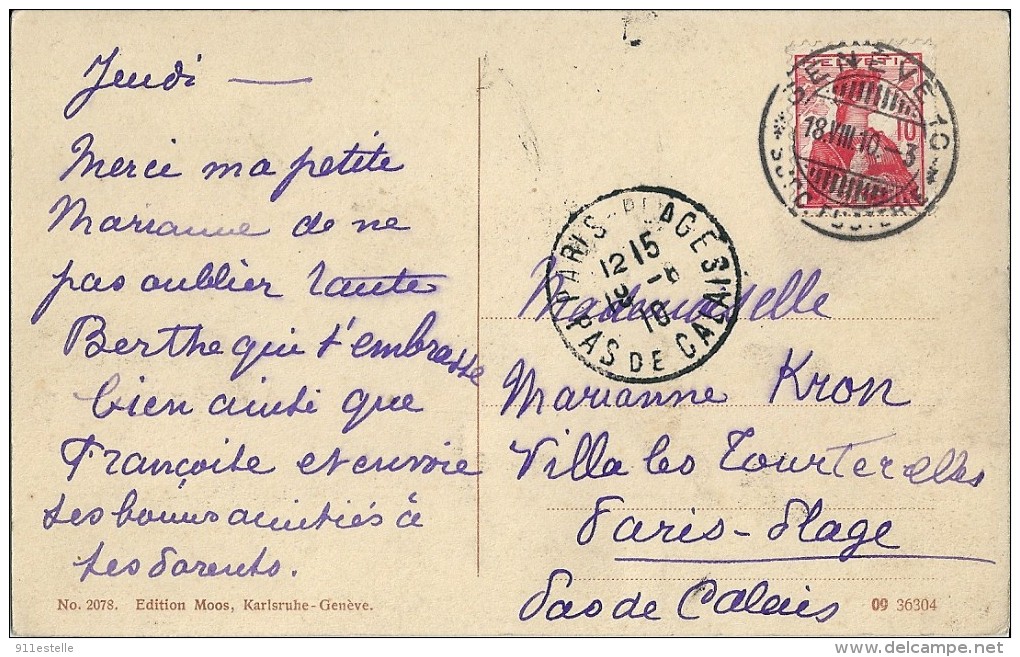 Jeudi —
Merci ma petite
Marianne de ne
pas oublier Tante
Berthe qui t'embrasse
bien ainsi que
Françoise et envoie
ses bonnes amitiés à
tes Parents.
No. 2078. Edition Moos, Karlsruhe-Genève.
HELVETIA
10
GENÈVE 10
18.VIII.10.-3
PARIS-PLAGE
12 15
19 -8
10
PAS DE CALAIS
Mademoiselle
Marianne Kron
Villa les Tourterelles
Paris-Plage
Pas de Calais
09 36304
911estelle
www.delcampe.net